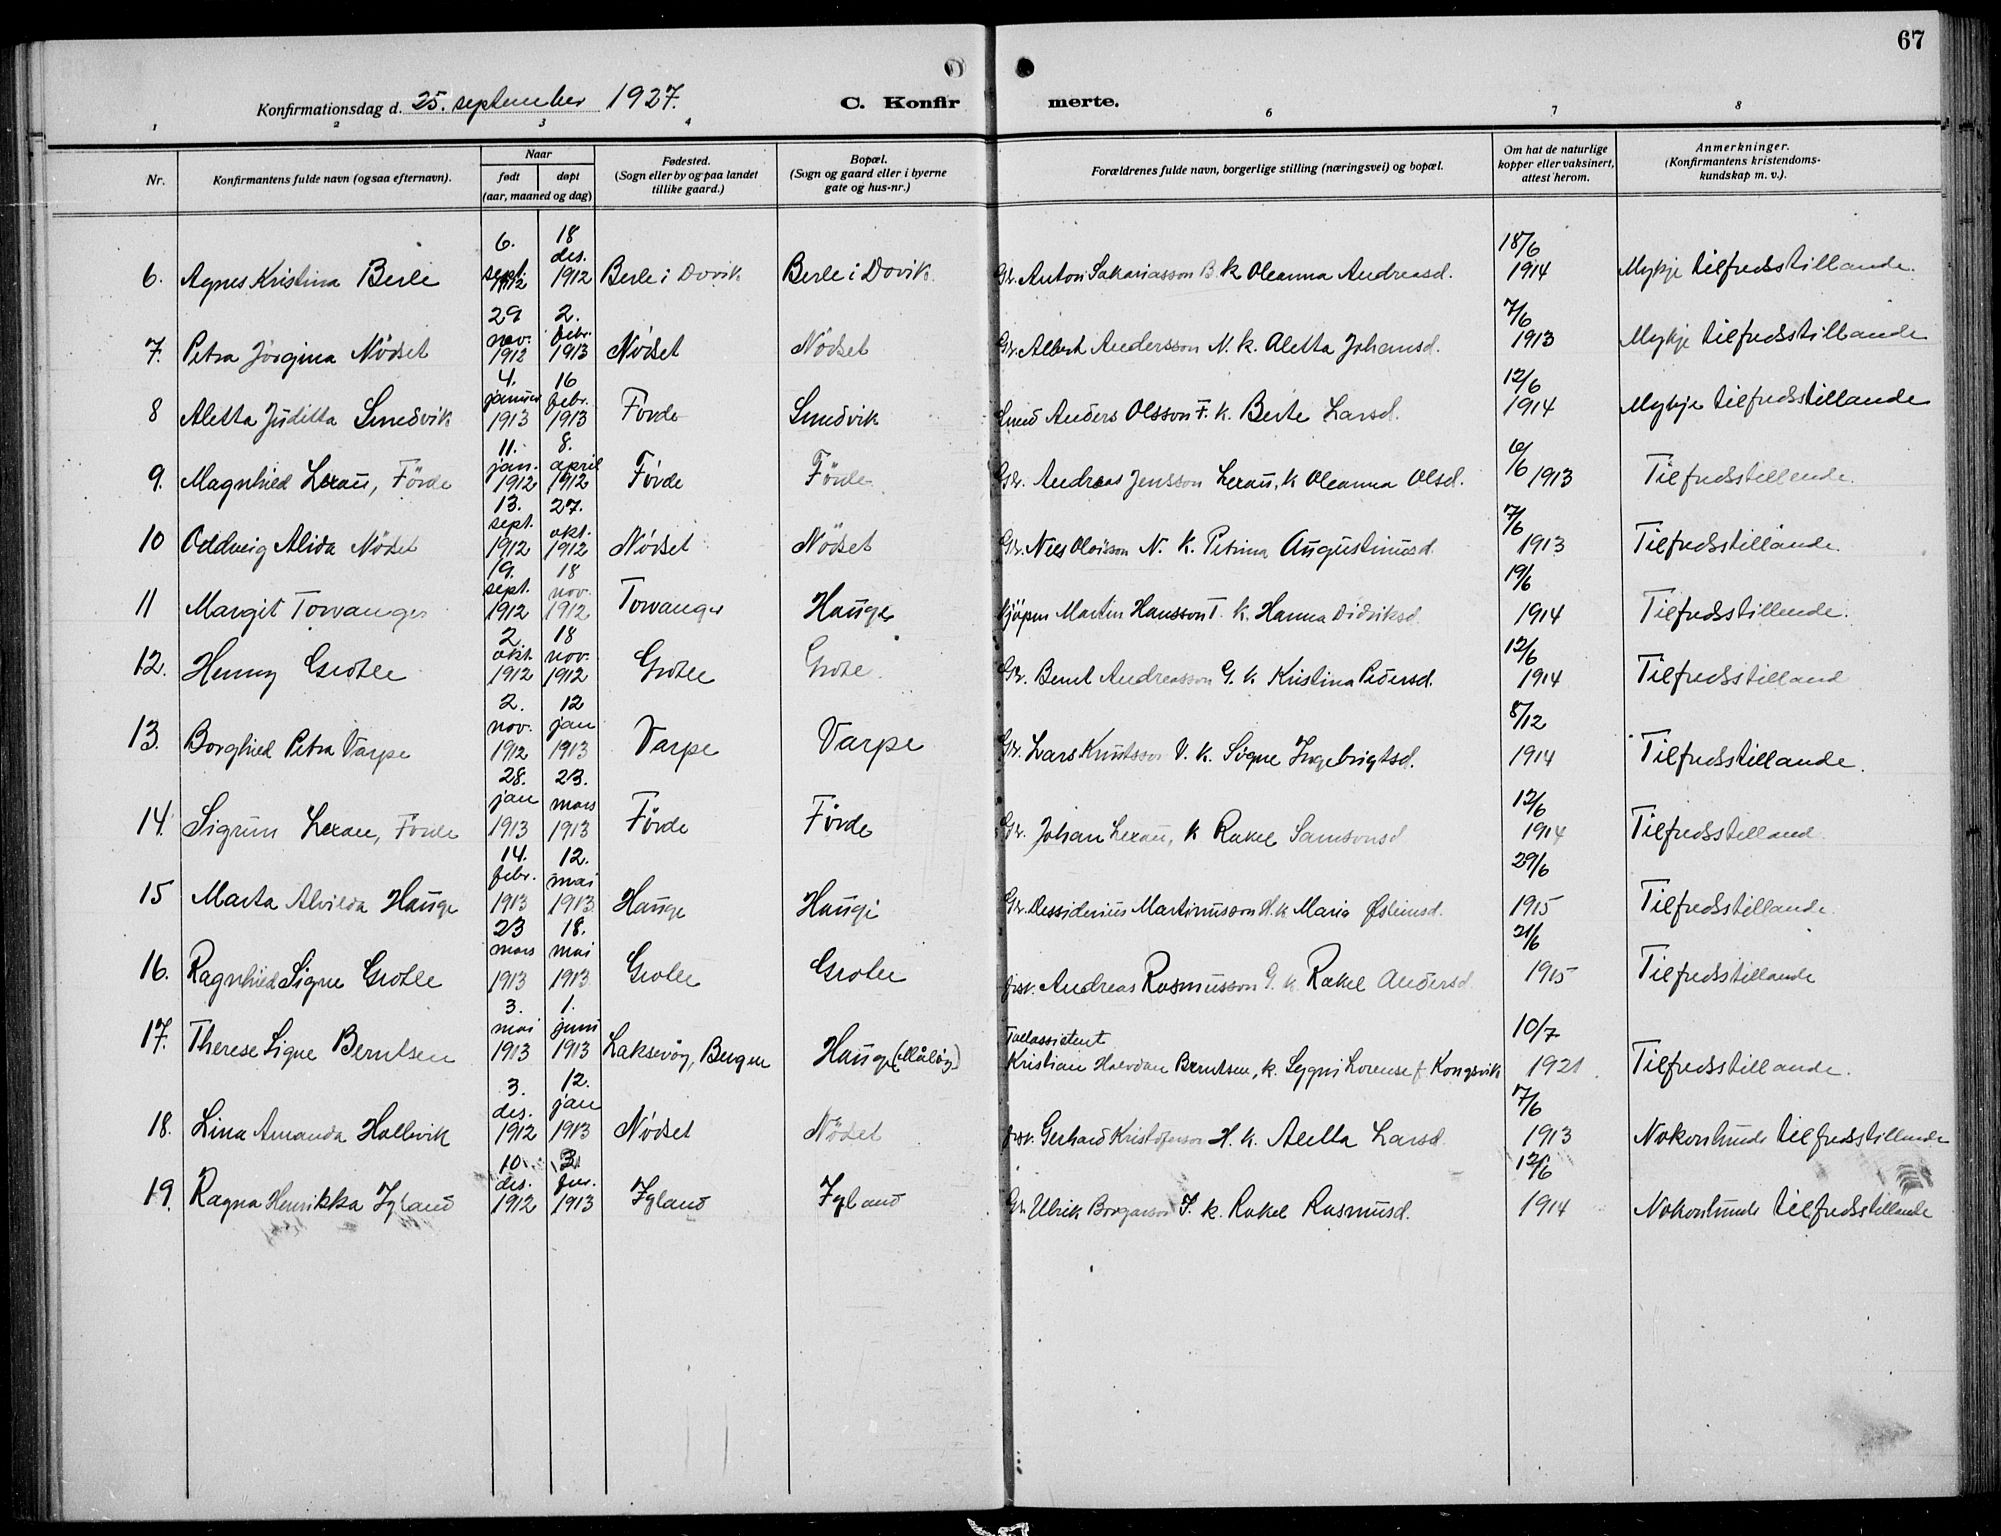 67
Konfirmationsdag d. 25. september 1927. C. Konfir merte.
1 2 3 4 6 7 8
Nr. Konfirmantens fulde navn (ogsaa efternavn). Naar født døpt (aar, maaned og dag) Fødested. (Sogn eller by og paa landet tillike gaard.) Bopæl. (Sogn og gaard eller i byerne gate og hus-nr.) Forældrenes fulde navn, borgerlige stilling (næringsvei) og bopæl. Om hat de naturlige kopper eller vaksinert, attest herom. Anmerkninger. (Konfirmantens kristendoms-kundskap m. v.).
6. Agnes Kristina Berle 6. sept. 1912 18 des. 1912 Berle i Davik Berle i Davik Gr. Anton Sakariasson B. k Oleanna Andreasd. 18/6 1914 Mykje tilfredsstillande.
7. Petra Jørgina Nödset 29 nov. 1912 2. febr. 1913 Nödset Nödset Gr. Albert Andersson N. k. Aletta Johansd. 7/6 1913 Mykje tilfredsstillande
8 Aletta Juditta Smedvik 4. januar 1913 16 febr. 1913 Förde Smedvik Smed Anders Olsson F. k. Berte Larsd. 12/6 1914 Mykje tilfredsstillande
9. Magnhild Lexau, Förde 11. jan. 1912 8. april 1912 Förde Förde Gr. Andreas Jensson Lexau, k Oleanna Olsd. 6/6 1913 Tilfredsstillende.
10 Oddveig Alida Nödset 13. sept. 1912 27. okt. 1912 Nödset Nödset Gr. Nils Olaisson N. k. Petrina Augustinusd. 7/6 1913 Tilfredsstillande.
11 Margit Torvanger 19. sept. 1912 18 nov. 1912 Torvanger Hauge Kjöpm Martin Hansson T. k. Hanna Didriksd. 19/6 1914 Tilfredsstillende.
12. Henny Grotle 2. okt. 1912 18 nov. 1912 Grotle Grotle Gr. Bernt Andreasson G. k. Kristina Pedersd. 12/6 1914 Tilfredsstilland
13. Borghild Petra Varpe 2. nov. 1912 12 jan 1913 Varpe Varpe Gr. Lars Knutsson V. k. Signe Ingebrigtsd. 8/12 1914 Tilfredsstillande.
14. Sigrun Lexau, Förde 28. jan 1913 23. mars 1913 Förde Förde Gr. Johan Lexau, k Rakel Samsonsd 12/6 1914 Tilfredsstilland.
15 Marta Alvilda Hauge 14. febr. 1913 12. mai 1913. Hauge Hauge Gr. Dessiderius Martinusson H. k Maria Østeinsd. 29/6 1915 Tilfredsstillande.
16. Ragnhild Signe Grotle 23 mars 1913 18. mai 1913. Grotle Grotle fisk. Andreas Rasmusson G. k Rakel Andersd. 21/6 1915 Tilfredsstillande
17. Therese Signe Berntsen 3. mai 1913 1. juni 1913 Laksevåg, Bergen Hauge (Måløy) Tollassistent Kristian Halvdan Berntsen, k. Lorense f. Kongsvik 10/7 1921. Tilfredsstillande.
18. Lina Amanda Hallvik 3. des. 1912 12. jan 1913 Nödset Nödset fisk. Gerhard Kristoferson H. k. Aletta Larsd. 7/6 1913 Nokonlunde tilfredsstillande
19. Ragna Henrikka Igland 10. des. 1912 2. 1913 Igland Igland Gr. Ulrik Borgarson I. k. Rakel Rasmusd. 12/6 1914 Nokonlunde tilfredsstillande